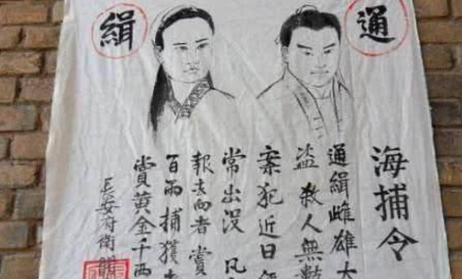 通緝
海捕令
通緝雌雄大
盗殺人無數
案犯近日
常出没 凡
報去向者賞
百兩捕獲
賞黄金千兩
長安府衙